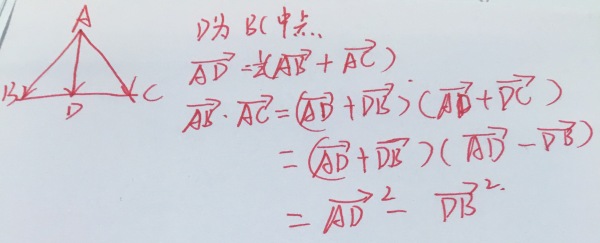 A
B D C
D为 BC 中点.
$\overrightarrow{AD} = \frac{1}{2}(\overrightarrow{AB} + \overrightarrow{AC})$
$\overrightarrow{AB} \cdot \overrightarrow{AC} = (\overrightarrow{AD} + \overrightarrow{DB}) \cdot (\overrightarrow{AD} + \overrightarrow{DC})$
$= (\overrightarrow{AD} + \overrightarrow{DB})(\overrightarrow{AD} - \overrightarrow{DB})$
$= \overrightarrow{AD}^2 - \overrightarrow{DB}^2.$